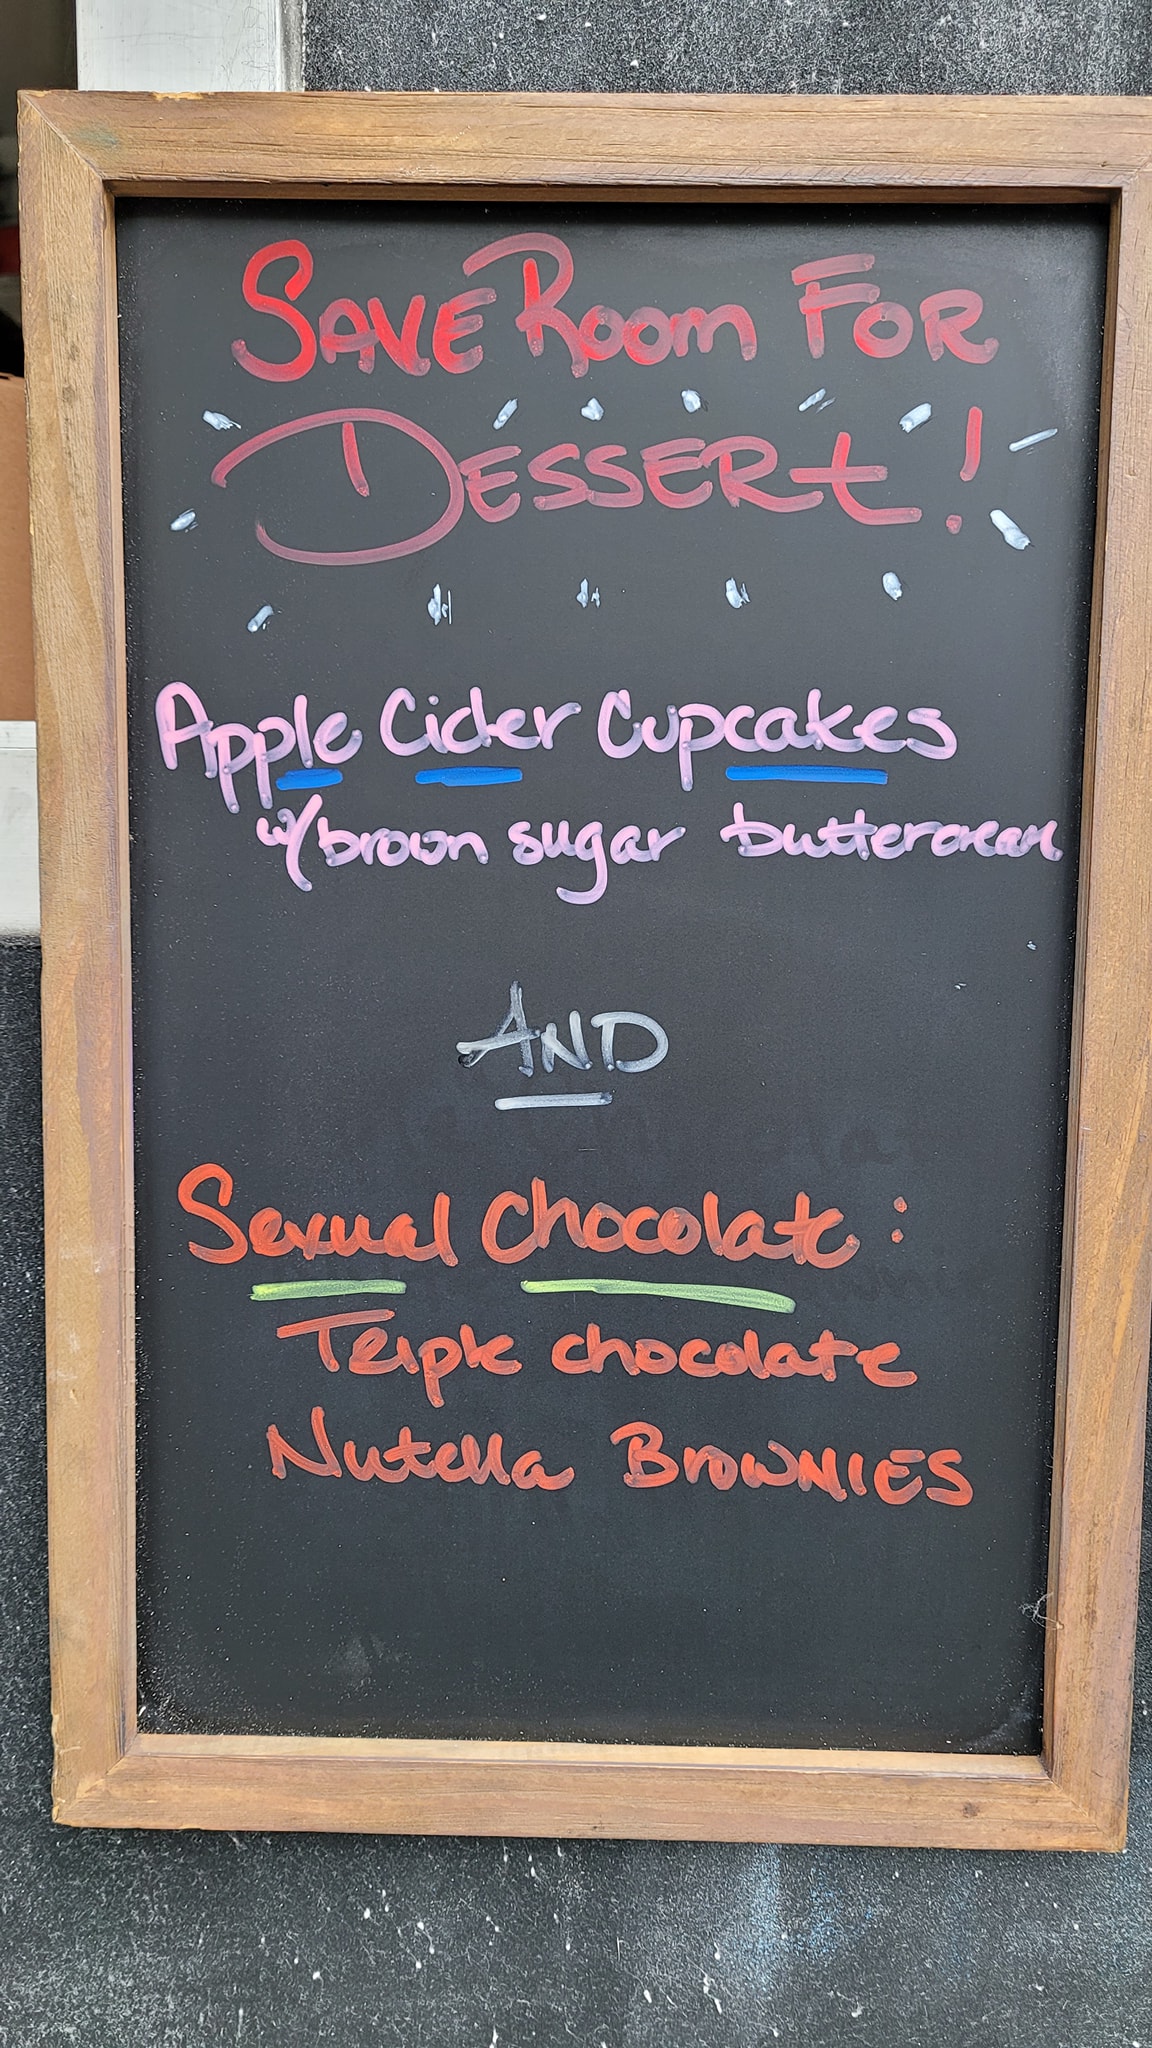 SAVE ROOM FOR
DESSERT!
Apple Cider Cupcakes
w/ brown sugar buttercream
AND
Sexual Chocolate:
Triple chocolate
Nutella BROWNIES